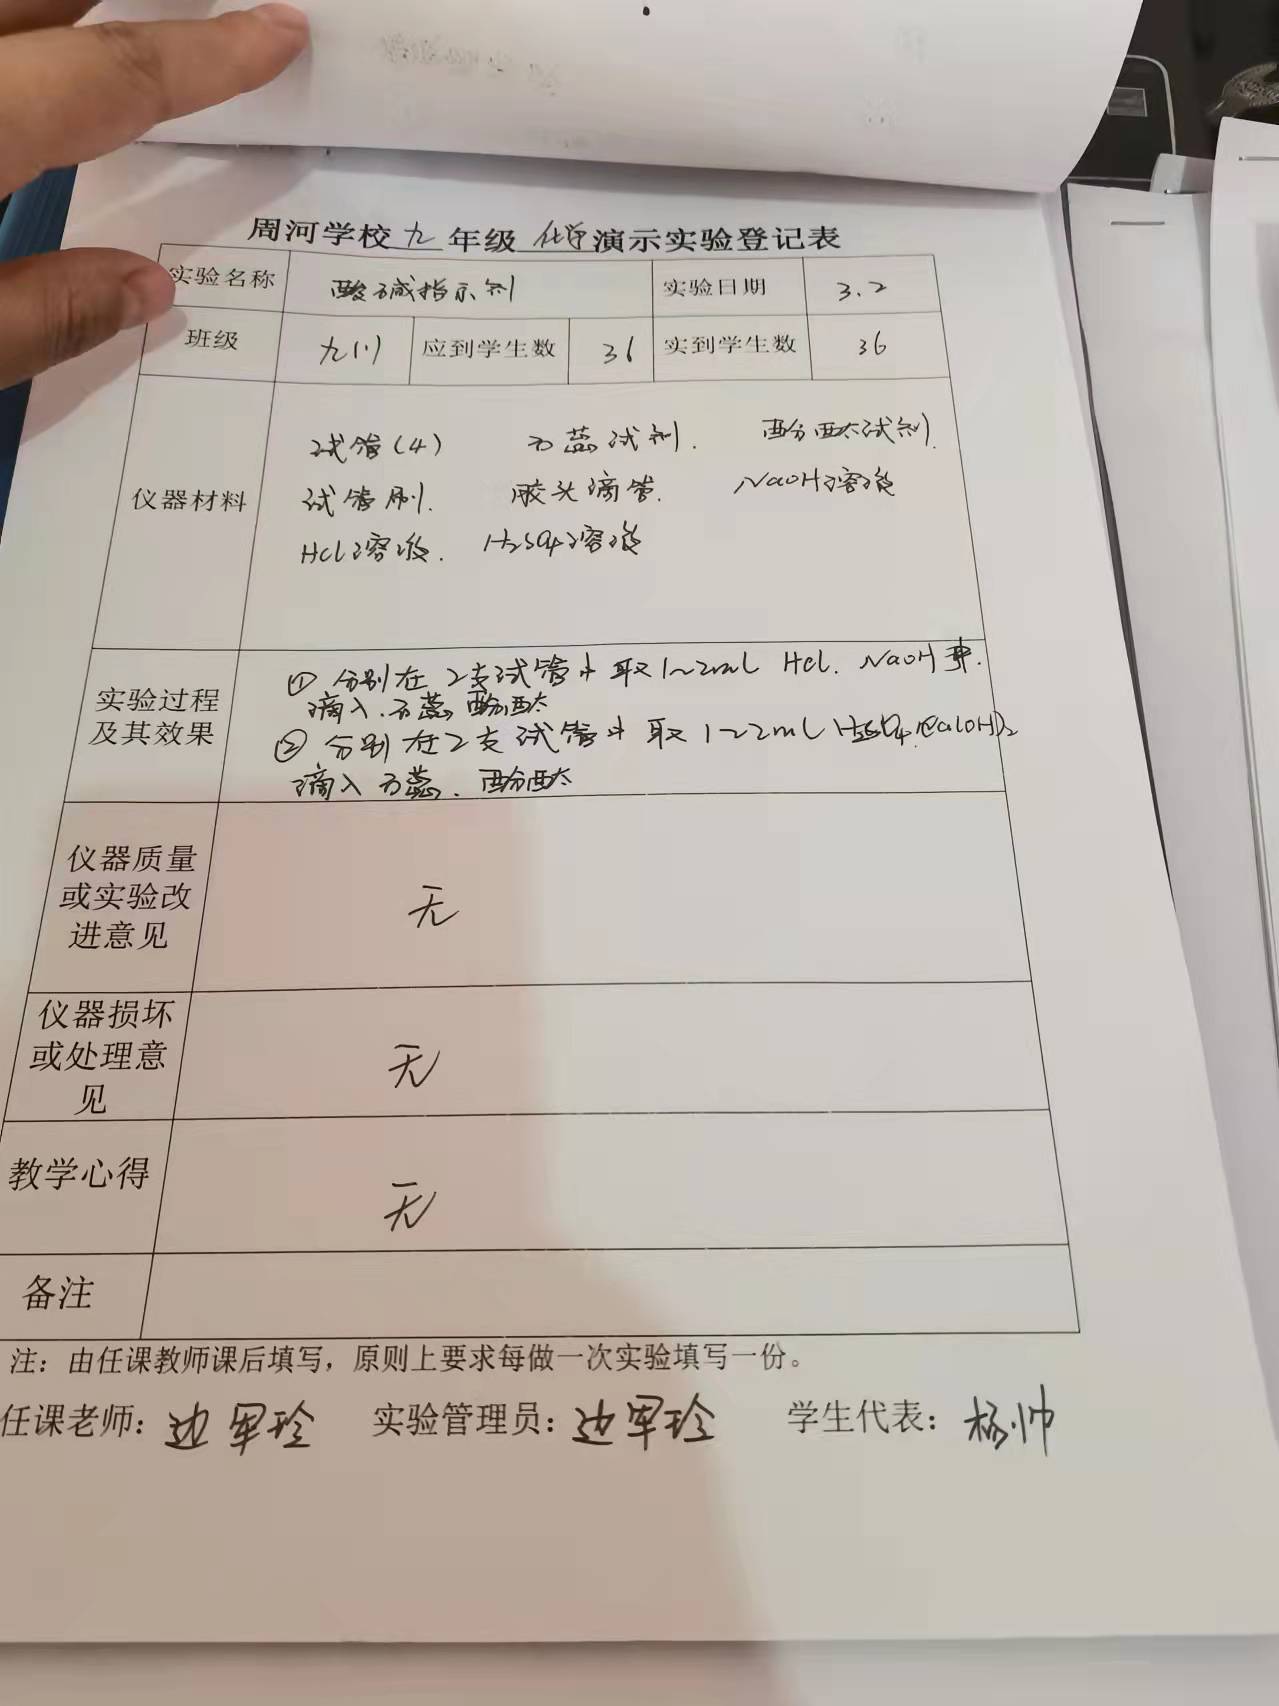 周河学校九年级化学演示实验登记表
实验名称 酸碱指示剂 实验日期 3.2
班级 九(1) 应到学生数 36 实到学生数 36
仪器材料
试管(4) 石蕊试剂. 酚酞试剂.
试管刷. 胶头滴管. NaOH溶液
HCl溶液. H2SO4溶液
实验过程
及其效果
① 分别在2支试管中取1~2mL HCl. NaOH 再.
滴入.石蕊, 酚酞
② 分别在2支试管中取1~2mL H2SO4.Ca(OH)2
滴入石蕊. 酚酞
仪器质量
或实验改
进意见
无
仪器损坏
或处理意
见
无
教学心得
无
备注
注：由任课教师课后填写，原则上要求每做一次实验填写一份。
任课老师：边军玲 实验管理员：边军玲 学生代表：杨帅